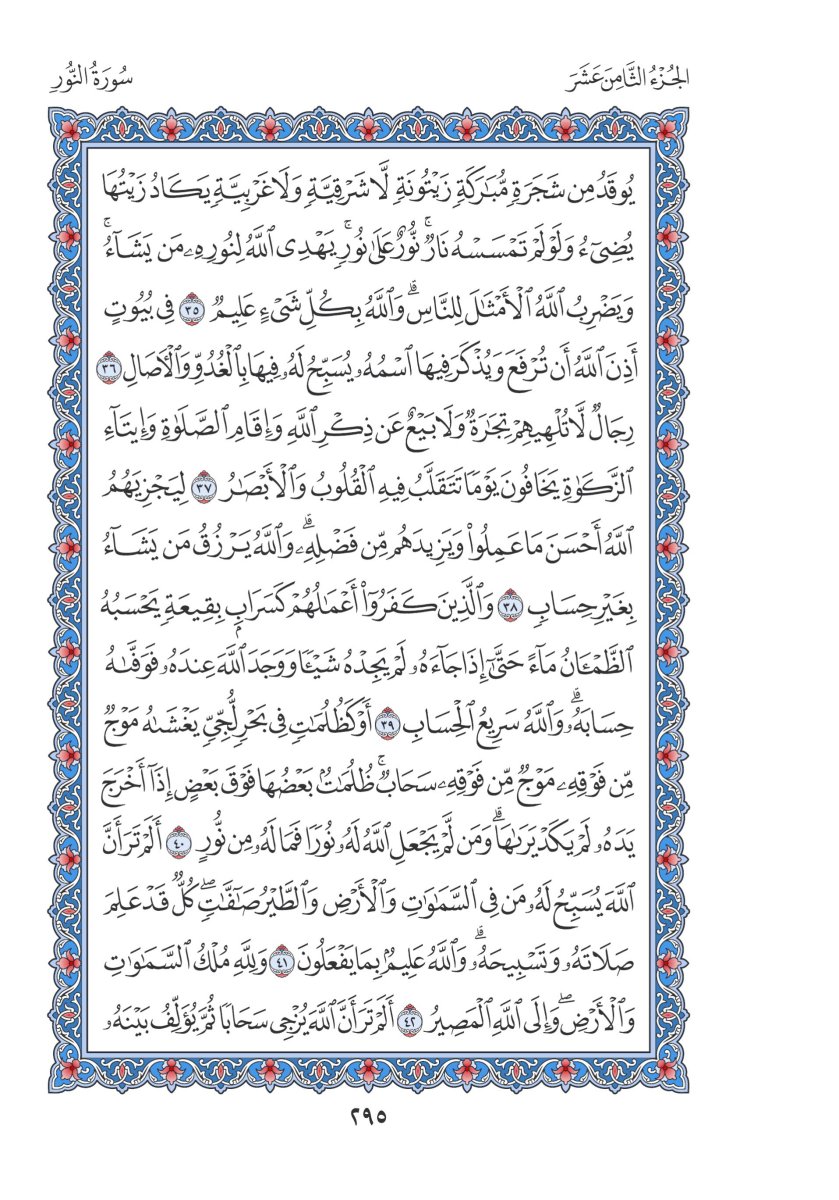 الجُزْءُ الثَّامِنَ عَشَرَ
سُورَةُ النُّورِ
يُوقَدُ مِن شَجَرَةٍ مُّبَٰرَكَةٍ زَيْتُونَةٍ لَّا شَرْقِيَّةٍ وَلَا غَرْبِيَّةٍ يَكَادُ زَيْتُهَا
يُضِىٓءُ وَلَوْ لَمْ تَمْسَسْهُ نَارٌۚ نُّورٌ عَلَىٰ نُورٍۚ يَهْدِى ٱللَّهُ لِنُورِهِۦ مَن يَشَآءُۚ
وَيَضْرِبُ ٱللَّهُ ٱلْأَمْثَٰلَ لِلنَّاسِۗ وَٱللَّهُ بِكُلِّ شَىْءٍ عَلِيمٌ ٣٥ فِى بُيُوتٍ
أَذِنَ ٱللَّهُ أَن تُرْفَعَ وَيُذْكَرَ فِيهَا ٱسْمُهُۥ يُسَبِّحُ لَهُۥ فِيهَا بِٱلْغُدُوِّ وَٱلْءَاصَالِ ٣٦
رِجَالٌ لَّا تُلْهِيهِمْ تِجَٰرَةٌ وَلَا بَيْعٌ عَن ذِكْرِ ٱللَّهِ وَإِقَامِ ٱلصَّلَوٰةِ وَإِيتَآءِ
ٱلزَّكَوٰةِ يَخَافُونَ يَوْمًا تَتَقَلَّبُ فِيهِ ٱلْقُلُوبُ وَٱلْأَبْصَٰرُ ٣٧ لِيَجْزِيَهُمُ
ٱللَّهُ أَحْسَنَ مَا عَمِلُوا۟ وَيَزِيدَهُم مِّن فَضْلِهِۦۗ وَٱللَّهُ يَرْزُقُ مَن يَشَآءُ
بِغَيْرِ حِسَابٍ ٣٨ وَٱلَّذِينَ كَفَرُوٓا۟ أَعْمَٰلُهُمْ كَسَرَابٍۭ بِقِيعَةٍ يَحْسَبُهُ
ٱلظَّمْـَٔانُ مَآءً حَتَّىٰٓ إِذَا جَآءَهُۥ لَمْ يَجِدْهُ شَيْـًٔا وَوَجَدَ ٱللَّهَ عِندَهُۥ فَوَفَّىٰهُ
حِسَابَهُۥۗ وَٱللَّهُ سَرِيعُ ٱلْحِسَابِ ٣٩ أَوْ كَظُلُمَٰتٍ فِى بَحْرٍ لُّجِّىٍّ يَغْشَىٰهُ مَوْجٌ
مِّن فَوْقِهِۦ مَوْجٌ مِّن فَوْقِهِۦ سَحَابٌۚ ظُلُمَٰتٌۢ بَعْضُهَا فَوْقَ بَعْضٍ إِذَآ أَخْرَجَ
يَدَهُۥ لَمْ يَكَدْ يَرَىٰهَاۗ وَمَن لَّمْ يَجْعَلِ ٱللَّهُ لَهُۥ نُورًا فَمَا لَهُۥ مِن نُّورٍ ٤٠ أَلَمْ تَرَ أَنَّ
ٱللَّهَ يُسَبِّحُ لَهُۥ مَن فِى ٱلسَّمَٰوَٰتِ وَٱلْأَرْضِ وَٱلطَّيْرُ صَٰٓفَّٰتٍۖ كُلٌّ قَدْ عَلِمَ
صَلَاتَهُۥ وَتَسْبِيحَهُۥۗ وَٱللَّهُ عَلِيمٌۢ بِمَا يَفْعَلُونَ ٤١ وَلِلَّهِ مُلْكُ ٱلسَّمَٰوَٰتِ
وَٱلْأَرْضِۖ وَإِلَى ٱللَّهِ ٱلْمَصِيرُ ٤٢ أَلَمْ تَرَ أَنَّ ٱللَّهَ يُزْجِى سَحَابًا ثُمَّ يُؤَلِّفُ بَيْنَهُۥ
٢٩٥